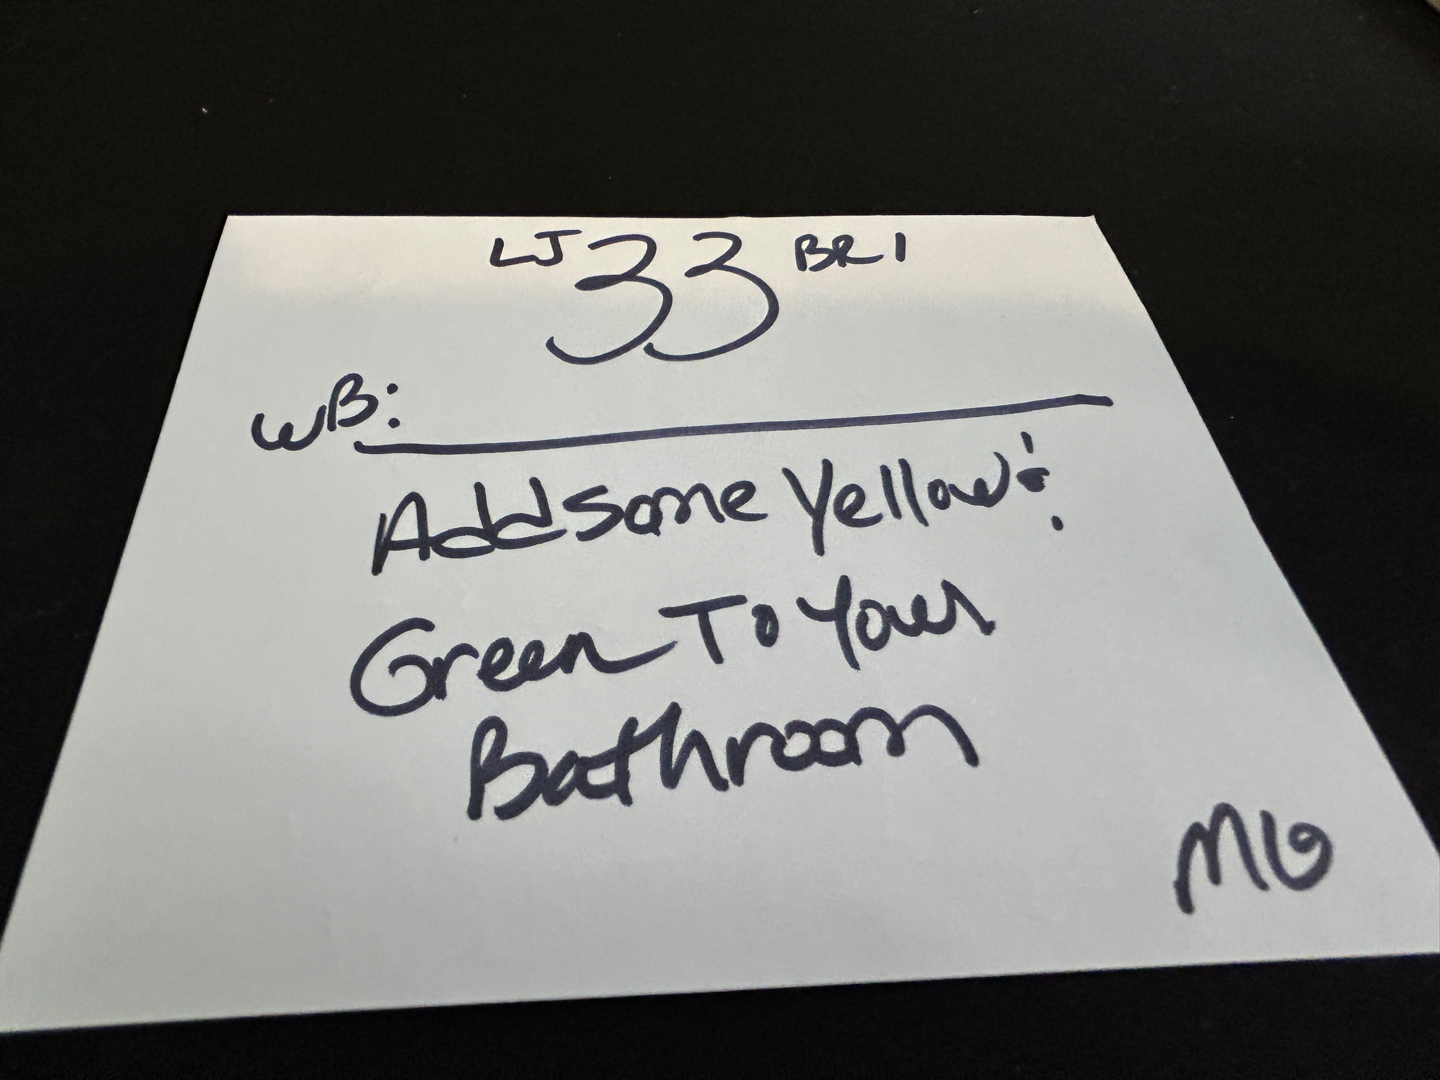 LJ 33 BR1
WB:
Add some Yellow &
Green To Your
Bathroom
MG